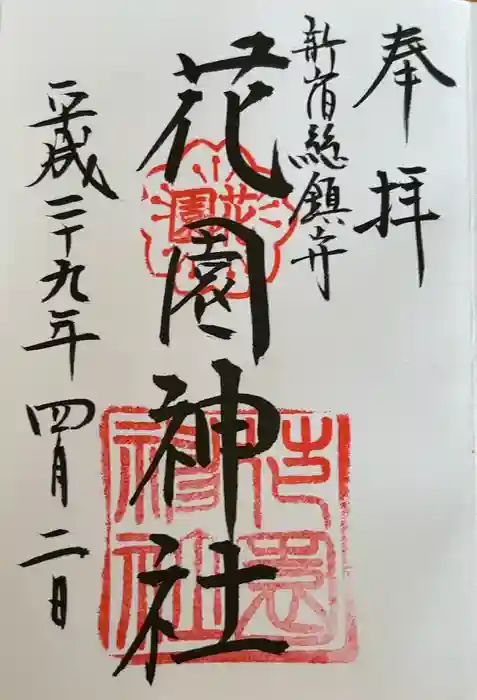 奉拝
新宿総鎮守
花園神社
花園
花園神社
平成二十九年四月二日